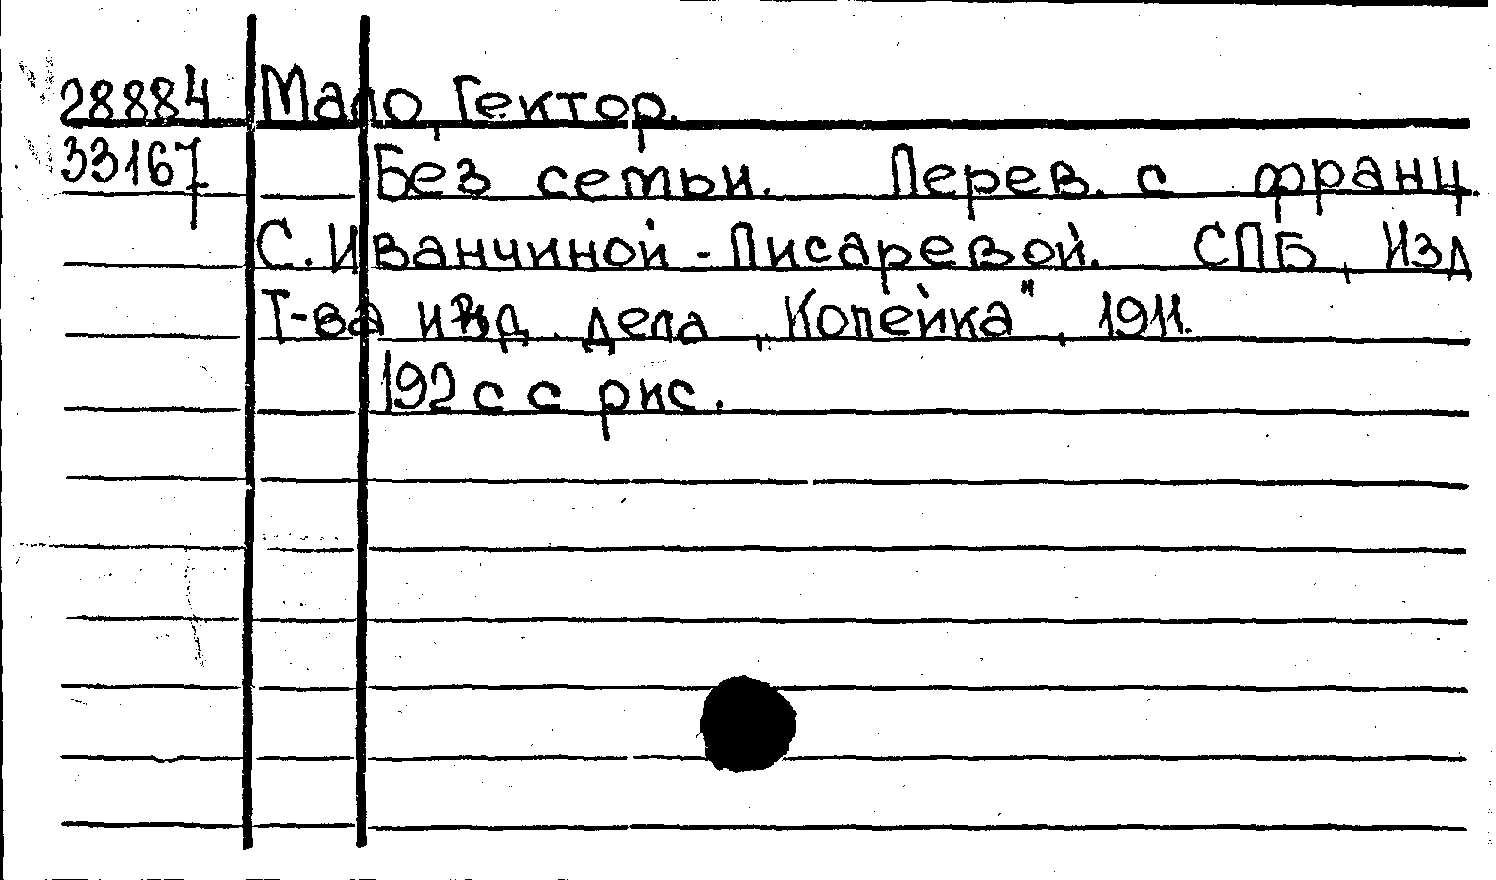 28884 Мало, Гектор.
33167 Без семьи. Перев. с франц.
С. Иванчиной-Писаревой. СПБ, Изд
Т-ва изд. дела „Копейка", 1911.
192 с с рис.